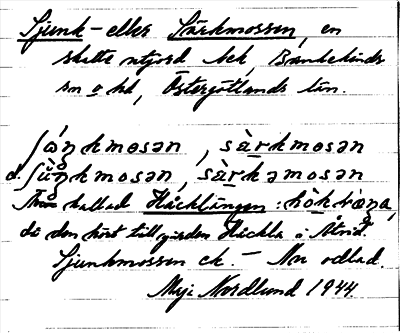 Sjunk- eller Särkmossen, en
skatte utjord bek, Bankekinds
sn o hd, Östergötlands län.
ʃɵ́ŋkmosən, sàrkmosən
d. ʃùŋkmosən, sàrkəmosən
kallad Häcklängen:
då den hört till gården Häckla i
Sjunkmossen ek. — Nu odlad.
Maj Nordlund 1944.